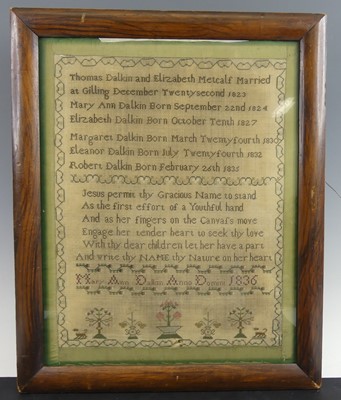 Thomas Dalkin and Elizabeth Metcalf Married
at Gilling December Twentysecond 1823
Mary Ann Dalkin Born September 22nd 1824
Elizabeth Dalkin Born October Tenth 1827
Margaret Dalkin Born March Twentyfourth 1830
Eleanor Dalkin Born July Twentyfourth 1832
Robert Dalkin Born February 26th 1835
Jesus permit thy Gracious Name to stand
As the first effort of a Youthful hand
And as her fingers on the Canvas's move
Engage her tender heart to seek thy love
With thy dear children let her have a part
And write thy NAME thy Nature on her heart
Mary Ann Dalkin Anno Domini 1836